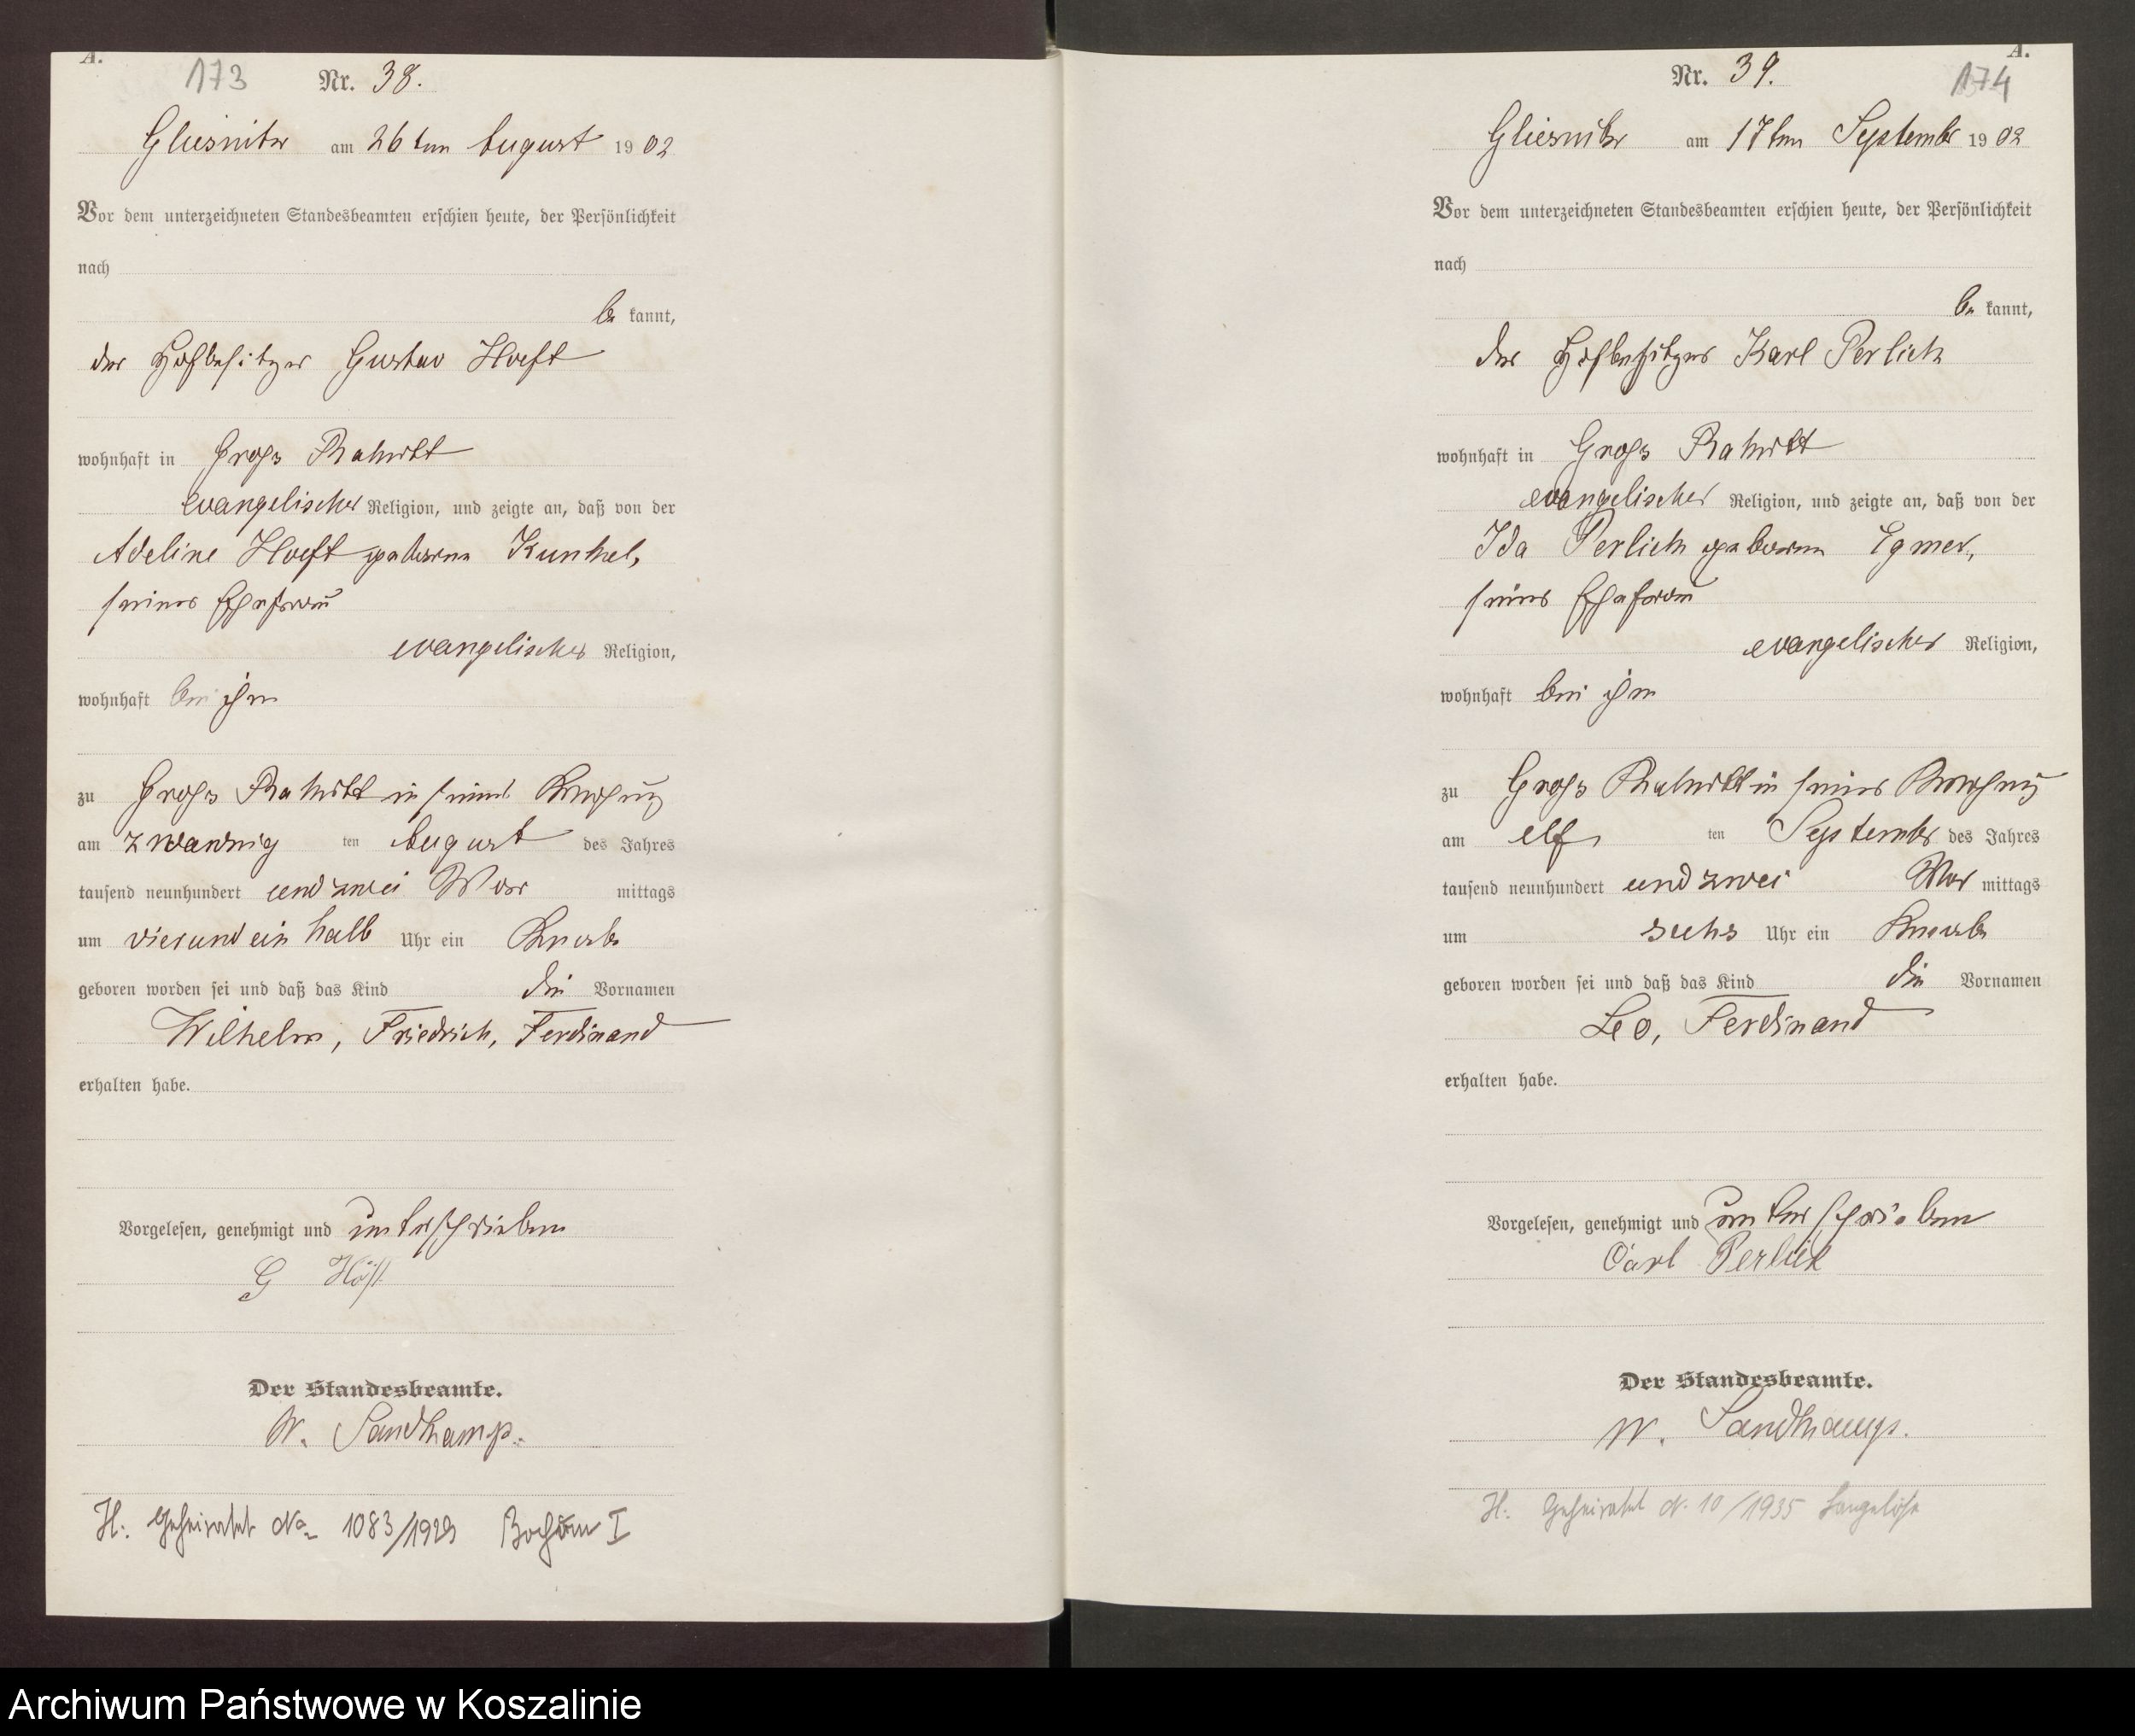 A.
173 Nr. 38.
Gliesnitz am 26ten August 1902
Vor dem unterzeichneten Standesbeamten erschien heute, der Persönlichkeit
nach
be kannt,
der Hofbesitzer Gustav Hoeft
wohnhaft in Gross Rakitt
evangelischer Religion, und zeigte an, daß von der
Adeline Hoeft geborene Kunkel,
seiner Ehefrau
evangelischer Religion,
wohnhaft bei ihm
zu Gross Rakitt in seiner Behausung
am zwanzig ten August des Jahres
tausend neunhundert und zwei Vor mittags
um vier und ein halb Uhr ein Knabe
geboren worden sei und daß das Kind die Vornamen
Wilhelm, Friedrich, Ferdinand
erhalten habe.
Vorgelesen, genehmigt und unterschrieben
G Höft
Der Standesbeamte.
W. Sandkamp.
H: Geheiratet No 1083/1929 Bochum I
A.
Nr. 39. 174
Gliesnitz am 17ten September 1902
Vor dem unterzeichneten Standesbeamten erschien heute, der Persönlichkeit
nach
be kannt,
der Hofbesitzer Karl Perlick
wohnhaft in Gross Rakitt
evangelischer Religion, und zeigte an, daß von der
Ida Perlick geborene Egmer,
seiner Ehefrau
evangelischer Religion,
wohnhaft bei ihm
zu Gross Rakitt in seiner Behausung
am elf ten September des Jahres
tausend neunhundert und zwei Vor mittags
um sechs Uhr ein Knabe
geboren worden sei und daß das Kind die Vornamen
Leo, Ferdinand
erhalten habe.
Vorgelesen, genehmigt und unterschrieben
Carl Perlick
Der Standesbeamte.
W. Sandkamp.
H: Geheiratet N. 10/1935 Langeböse
Archiwum Państwowe w Koszalinie